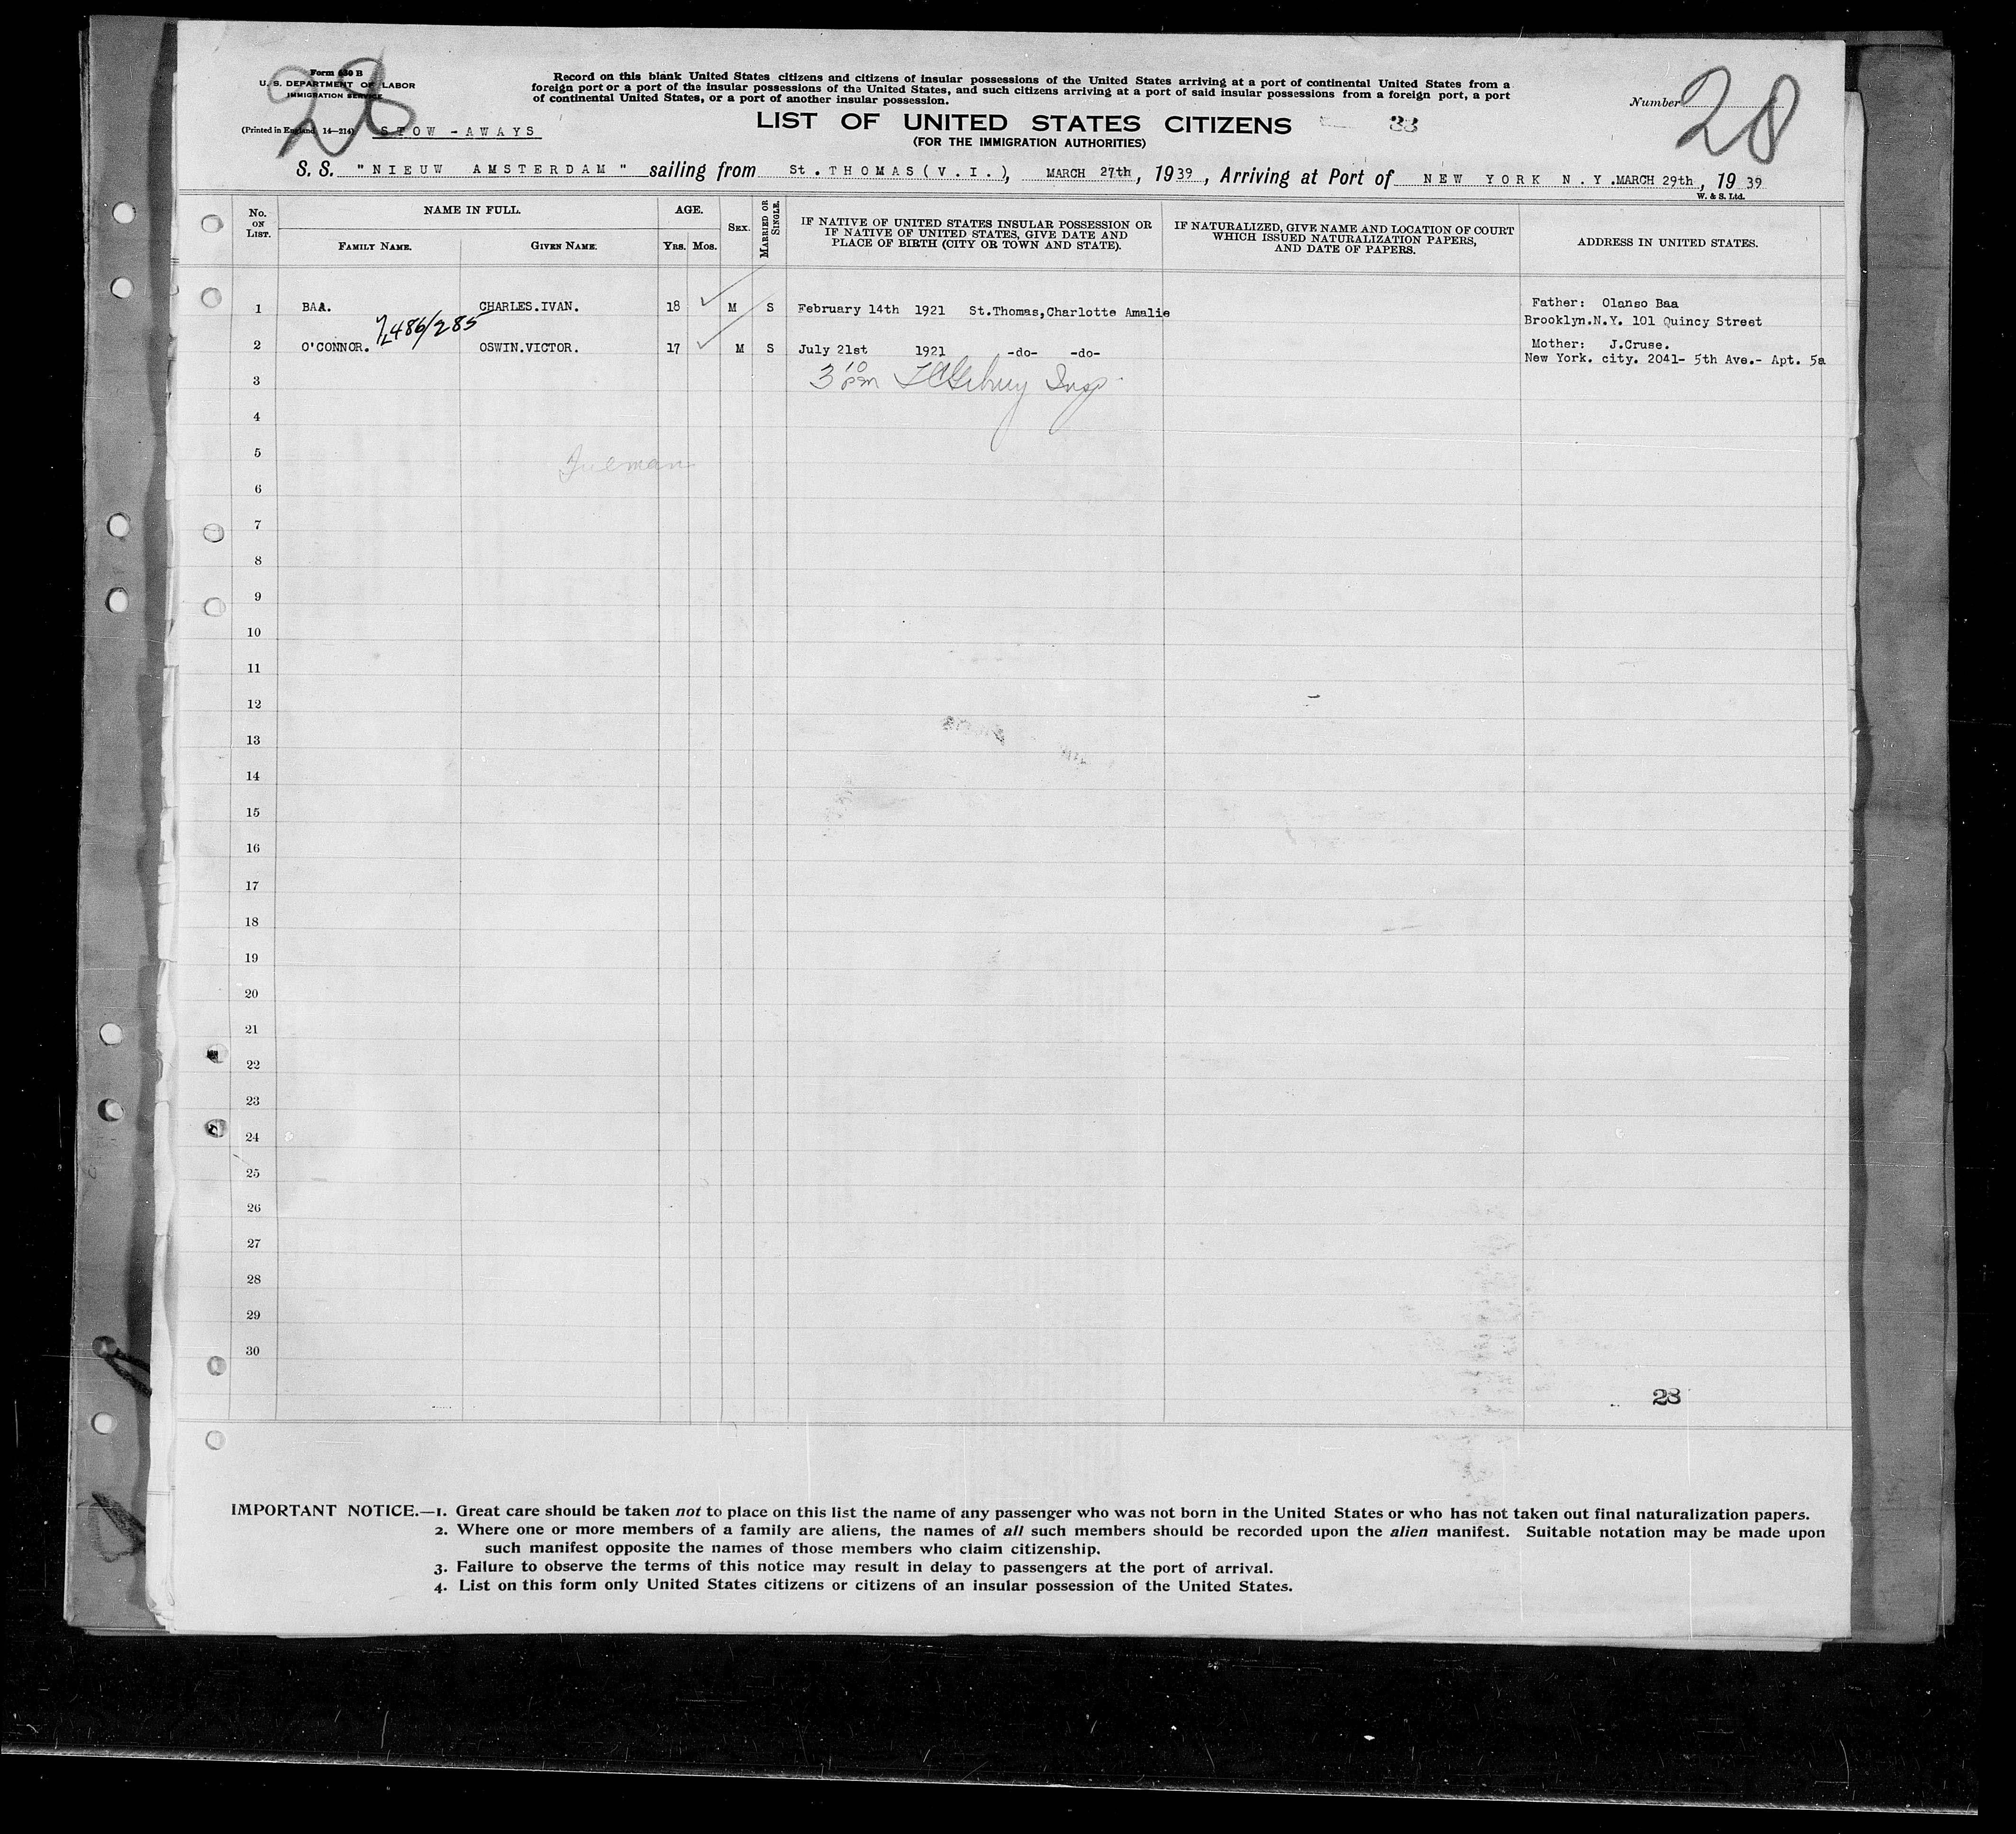 Form 630 B
U. S. DEPARTMENT OF LABOR
IMMIGRATION SERVICE
(Printed in England 14—214)
28
STOW-AWAYS
Record on this blank United States citizens and citizens of insular possessions of the United States arriving at a port of continental United States from a
foreign port or a port of the insular possessions of the United States, and such citizens arriving at a port of said insular possessions from a foreign port, a port
of continental United States, or a port of another insular possession.
Number 28
LIST OF UNITED STATES CITIZENS 33
(FOR THE IMMIGRATION AUTHORITIES)
S.S. "NIEUW AMSTERDAM" sailing from St. THOMAS(V.I.), MARCH 27th, 1939, Arriving at Port of NEW YORK N.Y. MARCH 29th, 1939
W. & S. Ltd.
No. ON LIST.
NAME IN FULL.
FAMILY NAME. GIVEN NAME.
AGE.
YRS. MOS.
SEX.
MARRIED OR SINGLE.
IF NATIVE OF UNITED STATES INSULAR POSSESSION OR
IF NATIVE OF UNITED STATES, GIVE DATE AND
PLACE OF BIRTH (CITY OR TOWN AND STATE).
IF NATURALIZED, GIVE NAME AND LOCATION OF COURT
WHICH ISSUED NATURALIZATION PAPERS,
AND DATE OF PAPERS.
ADDRESS IN UNITED STATES.
1 BAA. CHARLES.IVAN. 18 M S February 14th 1921 St.Thomas,Charlotte Amalie Father: Olanso Baa
Brooklyn.N.Y. 101 Quincy Street
486/285
2 O'CONNOR. OSWIN.VICTOR. 17 M S July 21st 1921 -do- -do- Mother: J.Cruse.
New York. city. 2041- 5th Ave.- Apt. 5a
3 3 10 pm Insp.
4
5
6
7
8
9
10
11
12
13
14
15
16
17
18
19
20
21
22
23
24
25
26
27
28
29
30
28
IMPORTANT NOTICE.—1. Great care should be taken not to place on this list the name of any passenger who was not born in the United States or who has not taken out final naturalization papers.
2. Where one or more members of a family are aliens, the names of all such members should be recorded upon the alien manifest. Suitable notation may be made upon
such manifest opposite the names of those members who claim citizenship.
3. Failure to observe the terms of this notice may result in delay to passengers at the port of arrival.
4. List on this form only United States citizens or citizens of an insular possession of the United States.